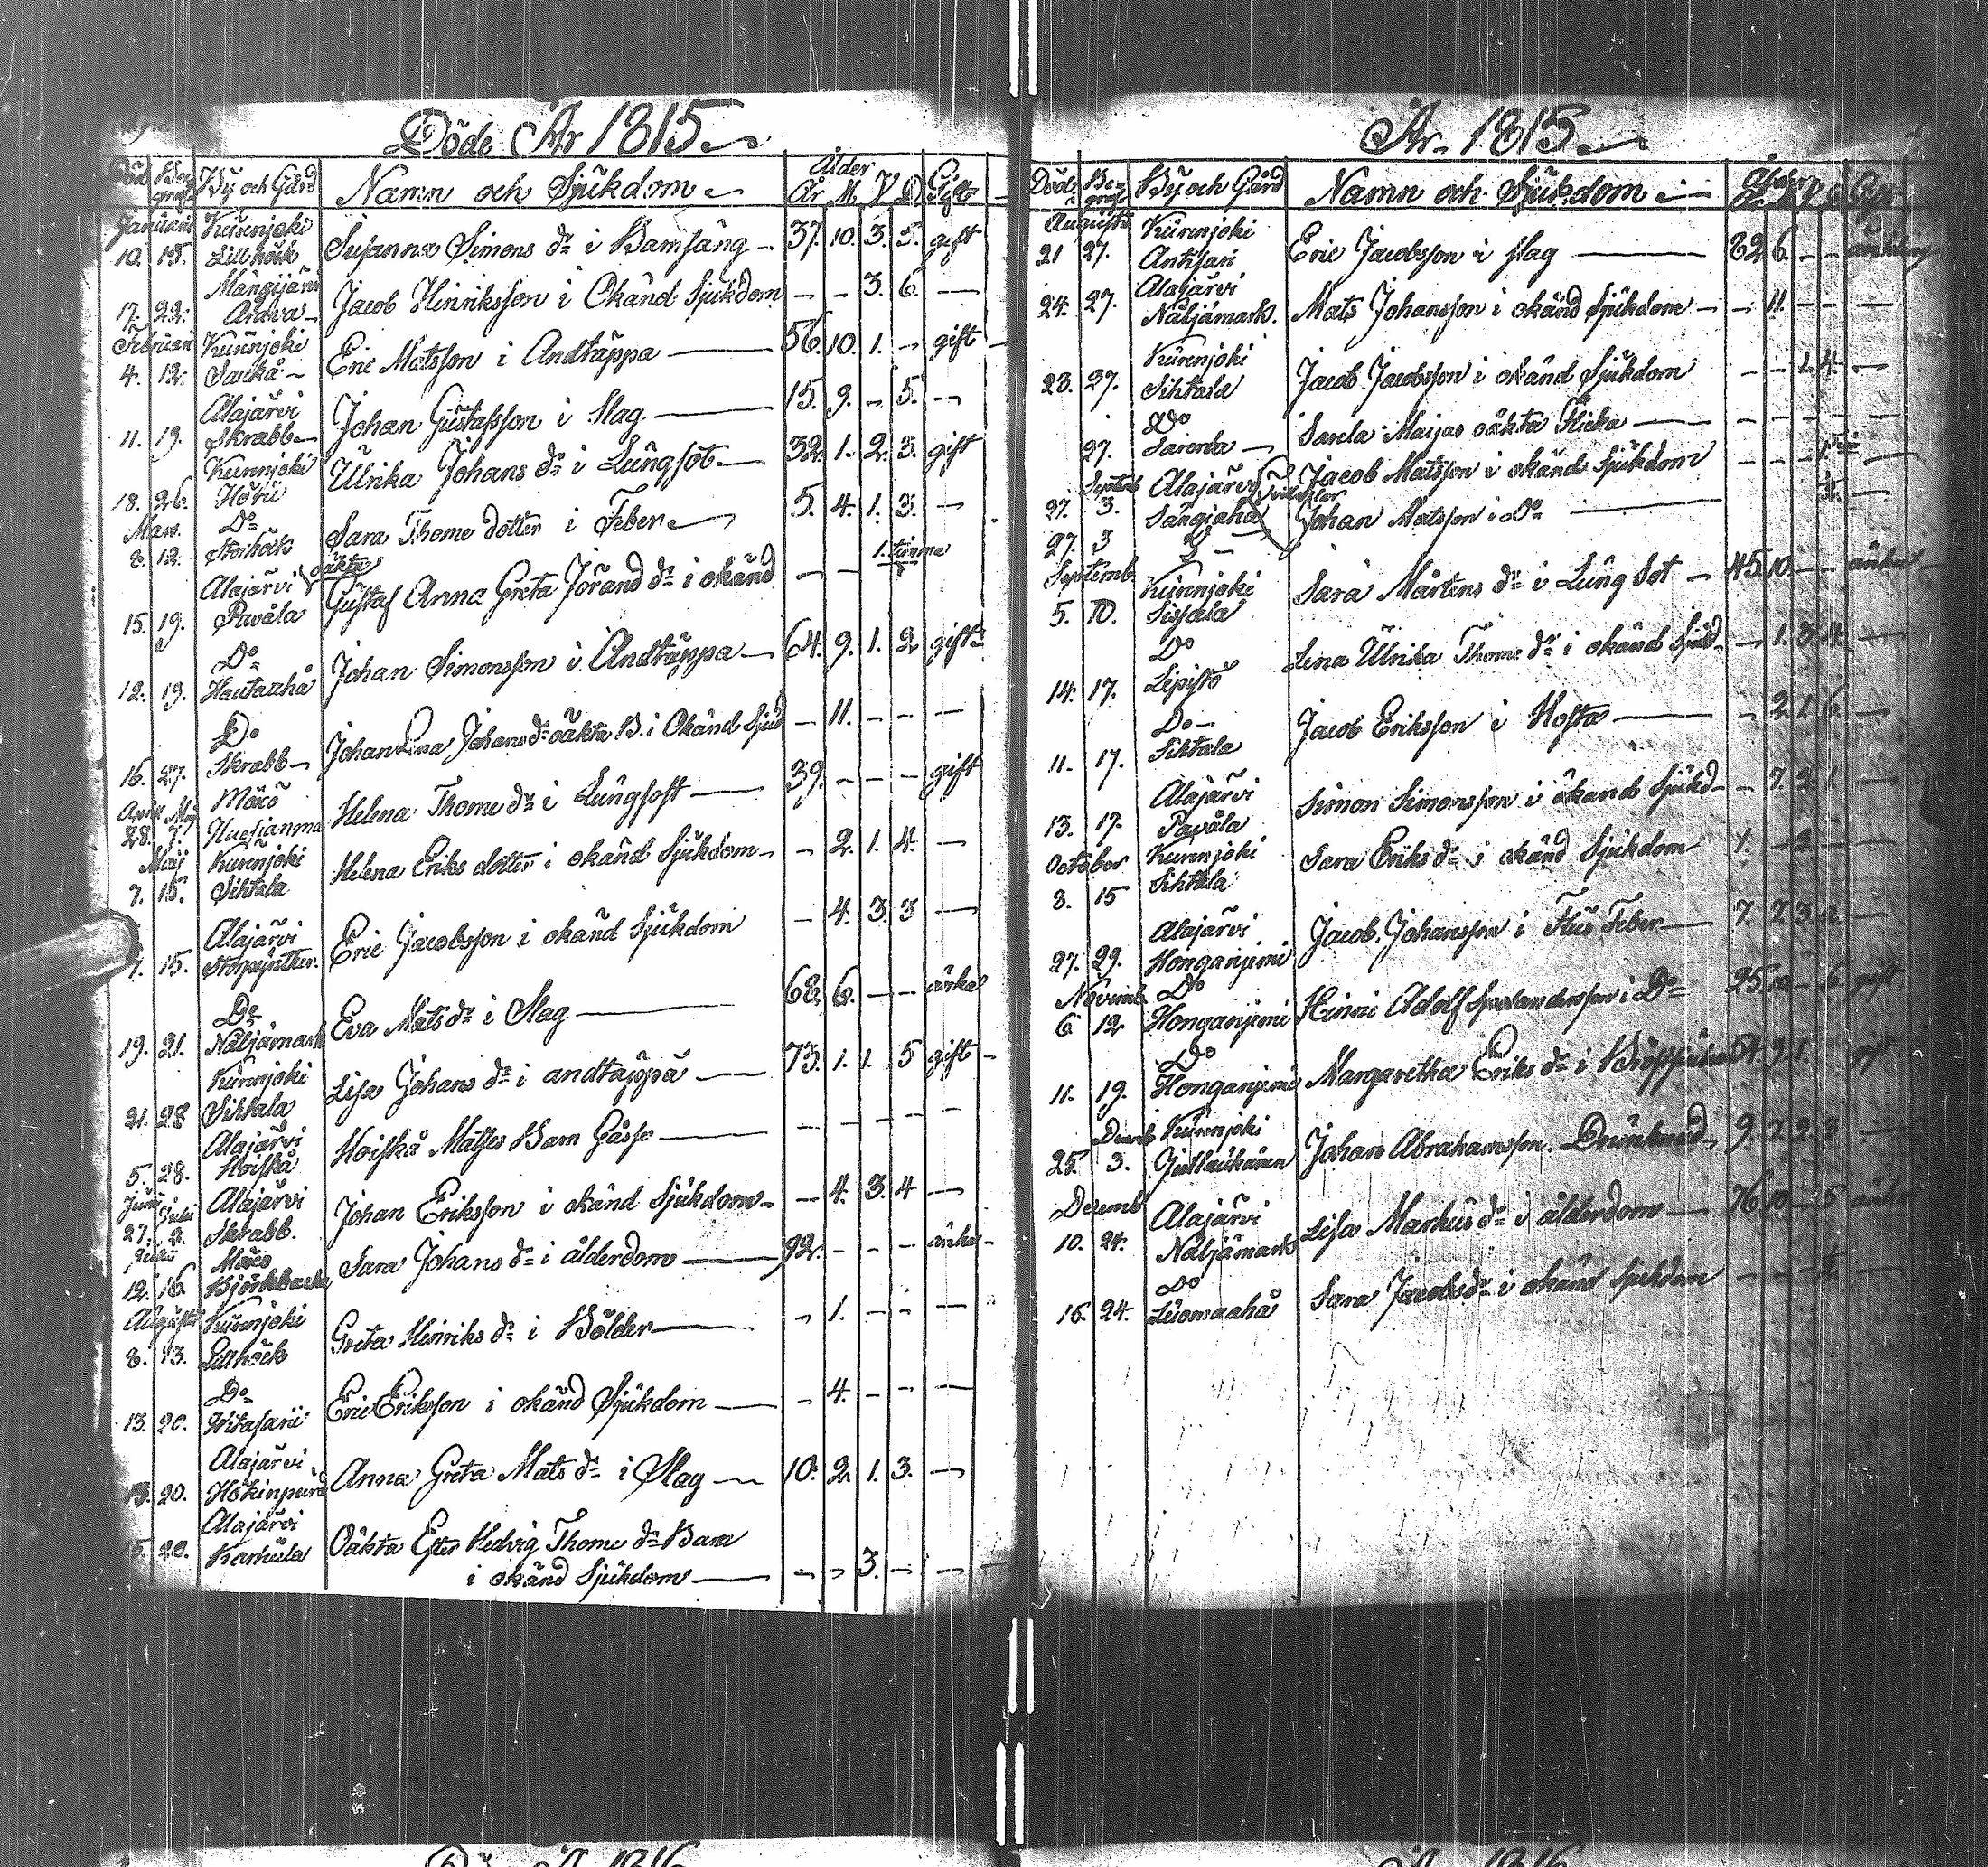 Döde År 1815
Död Be- By och Gård Namn och Sjukdom Ålder Gifte
graf. År M. V. D.
Januari Kurenjoki
10. 15. Lillhöök Susanna Simons dr i Barnsäng 37. 10. 3. 5. gift
Mängijärvi
17. 22. Jacob Hinriksson i Okänd Sjukdom — — 3. 6. —
Februari Kurenjoki
4. 12. Eric Matsson i Andtäppa 56. 10. 1. — gift
Alajärvi
11. 19. Skrabb Johan Gustafsson i Slag 15. 9. — 5. —
Kurenjoki
18. 26. Ulrika Johans dr i Lungsot 32. 1. 2. 3. gift
Mars. Do
8. 12. Storhöök Sara Thome dotter i Feber 5. 4. 1. 3. —
Alajärvi oäkta 1. timma
15. 19. Pavåla Gustaf Anna Greta Jörand dr i okänd — —
Do
12. 19. Johan Simonsson i Andtäppa 64. 9. 1. 2 gift
Do
16. 27. Skrabb Johan Lena Johans dr oäkta B. i Okänd Sjud — 11. — — —
April Maj Mäxö
28. 7. Helena Thome dr i Lungsoft 39. — — — gift
Maij Kurenjoki
7. 15. Sihtala Helena Eriks dotter i okänd Sjukdom — 2. 1. 4. —
Alajärvi
7. 15. Eric Jacobsson i okänd Sjukdom — 4. 3. 3 —
Do
19. 21. Näljämark Eva Mats dr i Slag 68. 6. — — änka
Kurenjoki
21. 28 Sihtala Lisa Johans dr i andtäppa 73. 1. 1. 5 gift
Alajärvi
5. 28. Hoiskå Hoiskå Matses Barn Gåsse — — — — —
Juni Julii Alajärvi
27. 2. Skrabb. Johan Eriksson i okänd Sjukdom — 4. 3. 4 —
Julii Mäxö
12. 16. Björkbacka Sara Johans dr i ålderdom 92. — — — änka
Augusti Kurenjoki
8. 13. Lillhöök Greta Hinriks dr i Bölder — 1. — — —
Do
13. 20. Eric Eriksson i okänd Sjukdom — 4. — — —
Alajärvi
13. 20. Anna Greta Mats dr i Slag 10. 2. 1. 3. —
Alajärvi
15. 20. Oäkta Ester Hedvig Thome dr Barn
i okänd Sjukdom — — 3. — —
År 1815
Död Be- By och Gård Namn och Sjukdom
graf.
Augusti Kurenjoki
21 27. Eric Jacobsson i slag 82 6. — — änkling
Alajärvi
24. 27. Näljämark. Mats Johansson i okänd Sjukdom — 11. — — —
Kurenjoki
23. 27. Sihtala Jacob Jacobsson i okänd Sjukdom — — 1. 4. —
Do
27. Sarela Maijas oäkta Flicka — — — — —
Septemb Alajärvi Tvillingar
27. 3. Jacob Matsson i okänd Sjukdom — — —
27. 3 Do Johan Matsson i Do
Septemb. Kurenjoki
5. 10. Sissala Sara Mårtens dr i Lung Sot 45. 10. — — änka
Do
14. 17. Lepistö Lena Ulrika Thome dr i okänd Sjukd — 1. 3. 4. —
Do
11. 17. Sihtala Jacob Eriksson i Hosta — 2. 1. 6. —
Alajärvi
13. 17. Pavåla Simon Simonsson i okänd Sjukd — 7. 2. 1. —
October Kurenjoki
8. 15 Sihtala Sara Eriks dr i okänd Sjukdom 1. — 2 — —
Alajärvi
27. 29. Honganjimi Jacob Johansson i Flus Feber 7. 7. 3. 2. —
Novemb. Do
6 12 Honganjimi Adolf i Do 25 10 — 6 gift
Do
11. 19. Honganjimi Margaretha Eriks dr i 54. 9. 1.
Decemb Kurenjoki
25. 3. Johan Abrahamsson. Drunknad 9. 7. 2. 3
Decemb Alajärvi
10. 24. Näljämark Lisa Markus dr i ålderdom 76. 10. — 5 änka
Do
15. 24. Sara Jacobs dr i okänd Sjukdom